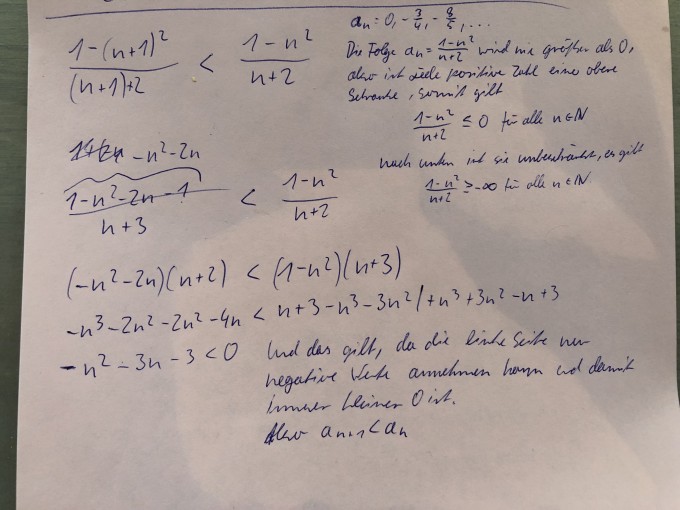 aₙ = 0, -3/4, -8/5, ...
(1-(n+1)²)/((n+1)+2) < (1-n²)/(n+2)
Die Folge aₙ = (1-n²)/(n+2) wird nie größer als 0,
also ist jede positive Zahl eine obere
Schranke, somit gilt
(1-n²)/(n+2) ≤ 0 für alle n∈ℕ
nach unten ist sie unbeschränkt, es gilt
(1-n²)/(n+2) ≥ -∞ für alle n∈ℕ
-n²-2n
(1-n²-2n-1)/(n+3) < (1-n²)/(n+2)
(-n²-2n)(n+2) < (1-n²)(n+3)
-n³-2n²-2n²-4n < n+3-n³-3n² / +n³+3n²-n+3
-n²-3n-3 < 0 Und das gilt, da die linke Seite nur
negative Werte annehmen kann und damit
immer kleiner 0 ist.
Also aₙ₊₁ < aₙ